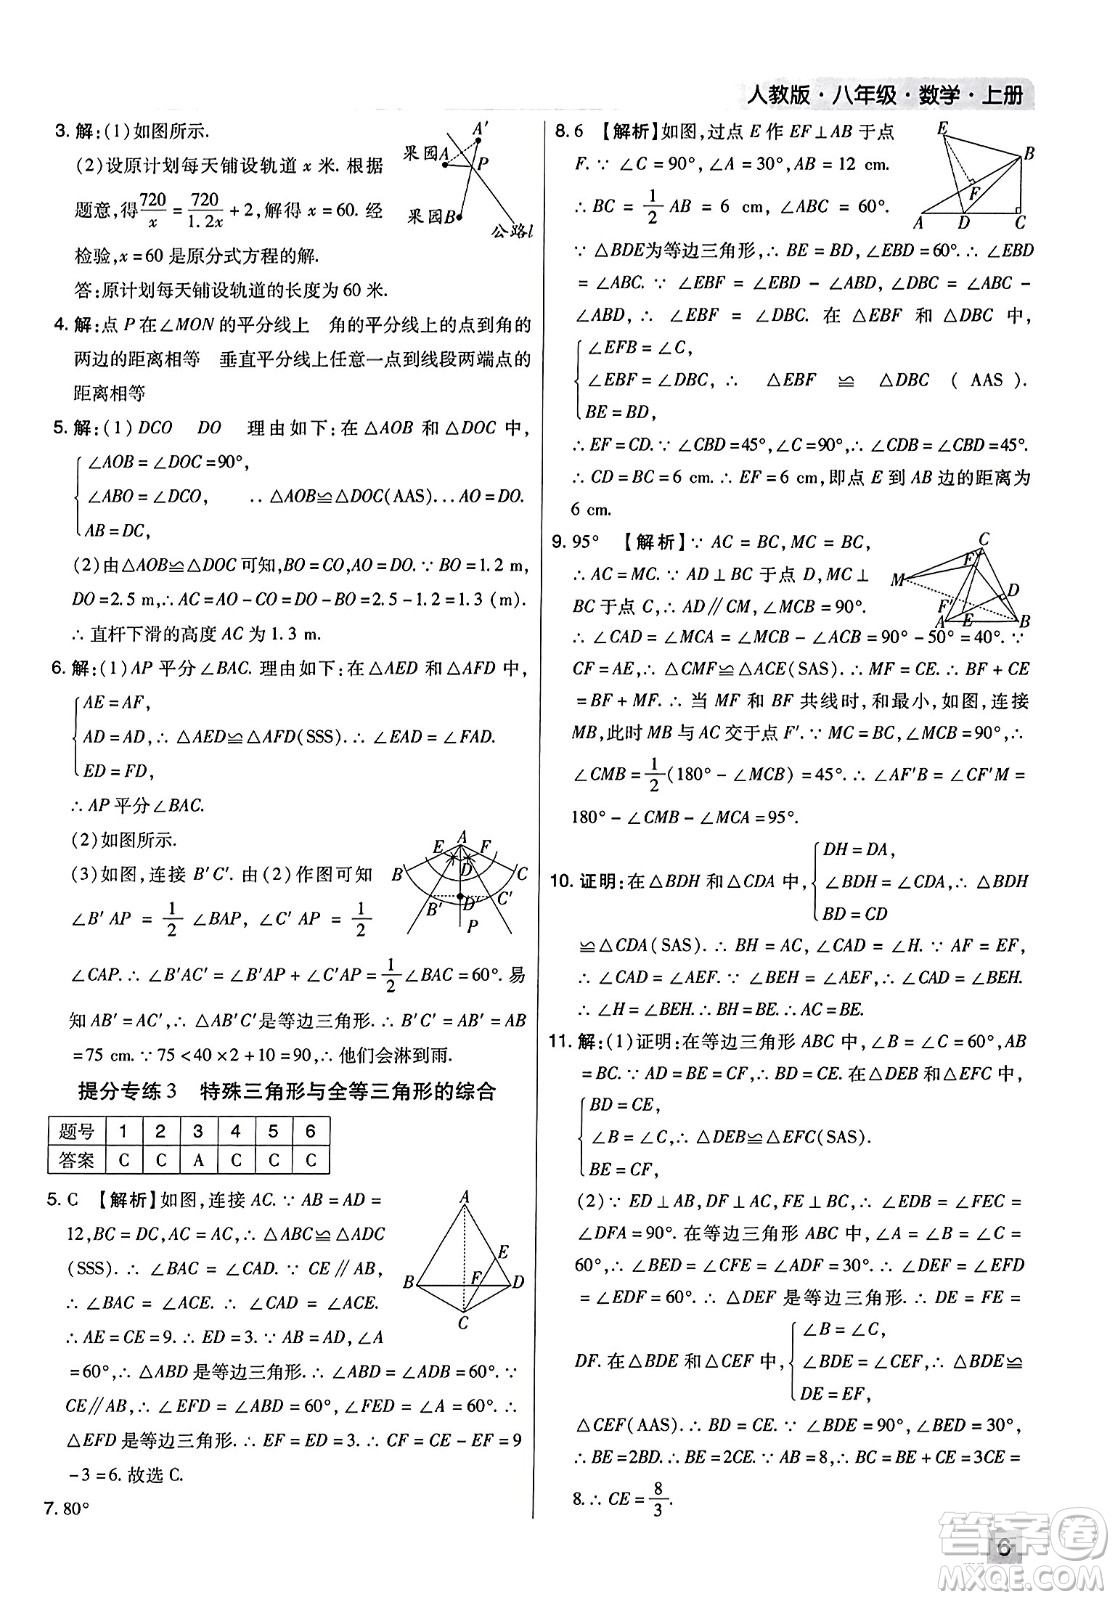 人教版·八年级·数学·上册
3. 解:(1)如图所示.
(2)设原计划每天铺设轨道 x 米. 根据
题意,得720/x = 720/1.2x + 2,解得 x = 60. 经
检验,x = 60 是原分式方程的解.
答:原计划每天铺设轨道的长度为 60 米.
果园A
A′
P
果园B
公路l
4. 解:点 P 在∠MON 的平分线上 角的平分线上的点到角的
两边的距离相等 垂直平分线上任意一点到线段两端点的
距离相等
5. 解:(1) DCO DO 理由如下:在△AOB 和△DOC 中,
∠AOB = ∠DOC = 90°,
∠ABO = ∠DCO, ∴△AOB≌△DOC(AAS).∴AO = DO.
AB = DC,
(2)由△AOB≌△DOC 可知,BO = CO,AO = DO. ∵BO = 1.2 m,
DO = 2.5 m,∴AC = AO - CO = DO - BO = 2.5 - 1.2 = 1.3 (m).
∴直杆下滑的高度 AC 为 1.3 m.
6. 解:(1) AP 平分∠BAC. 理由如下:在△AED 和△AFD 中,
AE = AF,
AD = AD,∴△AED≌△AFD(SSS).∴∠EAD = ∠FAD.
ED = FD,
∴AP 平分∠BAC.
(2)如图所示.
(3)如图,连接 B′C′. 由(2)作图可知
∠B′AP = 1/2 ∠BAP, ∠C′AP = 1/2
∠CAP. ∴∠B′AC′ = ∠B′AP + ∠C′AP = 1/2∠BAC = 60°. 易
知 AB′ = AC′,∴△AB′C′是等边三角形. ∴B′C′ = AB′ = AB
= 75 cm. ∵75 < 40 × 2 + 10 = 90,∴他们会淋到雨.
A
E F
B D C
B′ D′ C′
P
提分专练 3 特殊三角形与全等三角形的综合
题号 1 2 3 4 5 6
答案 C C A C C C
5. C 【解析】如图,连接 AC. ∵AB = AD =
12,BC = DC,∴△ABC≌△ADC
(SSS). ∴∠BAC = ∠DAC. ∵CE∥AB,
∴∠BAC = ∠ACE. ∴∠CAD = ∠ACE.
∴AE = CE = 9. ∴ED = 3. ∵AB = AD,∠A
= 60°,∴△ABD 是等边三角形. ∴∠ABD = ∠ADB = 60°. ∵
CE∥AB,∴∠EFD = ∠ABD = 60°,∠FED = ∠A = 60°. ∴
△EFD 是等边三角形. ∴EF = ED = 3. ∴CF = CE - EF = 9
- 3 = 6. 故选 C.
A
E
B F D
C
7. 80°
8. 6 【解析】如图,过点 E 作 EF⊥AB 于点
F. ∵∠C = 90°,∠A = 30°,AB = 12 cm.
∴BC = 1/2 AB = 6 cm,∠ABC = 60°.
∵△BDE为等边三角形,∴BE = BD,∠EBD = 60°. ∴∠EBD
= ∠ABC. ∴∠EBF = ∠EBD - ∠ABD, ∠DBC = ∠ABC -
∠ABD, ∴∠EBF = ∠DBC. 在△EBF 和△DBC 中,
∠EFB = ∠C,
∠EBF = ∠DBC, ∴△EBF≌△DBC (AAS).
BE = BD,
∴EF = CD. ∵∠CBD = 45°,∠C = 90°,∴∠CDB = ∠CBD = 45°.
∴CD = BC = 6 cm. ∴EF = 6 cm,即点 E 到 AB 边的距离为
6 cm.
E
B
F
A D C
9. 95° 【解析】∵AC = BC,MC = BC,
∴AC = MC. ∵AD⊥BC 于点 D,MC⊥
BC 于点 C,∴AD∥CM,∠MCB = 90°.
∴∠CAD = ∠MCA = ∠MCB - ∠ACB = 90° - 50° = 40°. ∵
CF = AE,∴△CMF≌△ACE(SAS). ∴MF = CE. ∴BF + CE
= BF + MF. ∴当 MF 和 BF 共线时,和最小,如图,连接
MB,此时 MB 与 AC 交于点 F′. ∵MC = BC,∠MCB = 90°,∴
∠CMB = 1/2(180° - ∠MCB) = 45°. ∴∠AF′B = ∠CF′M =
180° - ∠CMB - ∠MCA = 95°.
C
F
M
D
F′
A E B
10. 证明:在△BDH 和△CDA 中,
DH = DA,
∠BDH = ∠CDA,∴△BDH
BD = CD
≌△CDA(SAS). ∴BH = AC,∠CAD = ∠H. ∵AF = EF,
∴∠CAD = ∠AEF. ∵∠BEH = ∠AEF, ∴∠CAD = ∠BEH.
∴∠H = ∠BEH. ∴BH = BE. ∴AC = BE.
11. 解:(1)证明:在等边三角形 ABC 中,∠B = ∠C = 60°,AB
= BC. ∵BE = AD,∴BD = CE. 在△DEB 和△EFC 中,
BD = CE,
∠B = ∠C,∴△DEB≌△EFC(SAS).
BE = CF,
(2)∵ED⊥AB,DF⊥AC,FE⊥BC,∴∠EDB = ∠FEC =
∠DFA = 90°. 在等边三角形 ABC 中,∠A = ∠B = ∠C =
60°,∴∠BED = ∠CFE = ∠ADF = 30°. ∴∠DEF = ∠DFE
= ∠EDF = 60°. ∴△DEF 是等边三角形. ∴DE = FE =
DF. 在△BDE 和△CEF 中,
∠B = ∠C,
∠BDE = ∠CEF,∴△BDE≌
DE = EF,
△CEF(AAS). ∴BD = CE. ∵∠BDE = 90°,∠BED = 30°,
∴BE = 2BD. ∴BE = 2CE. ∵AB = 8,∴BC = BE + CE = 3CE =
8. ∴CE = 8/3.
6
答案圈
MXQE.COM